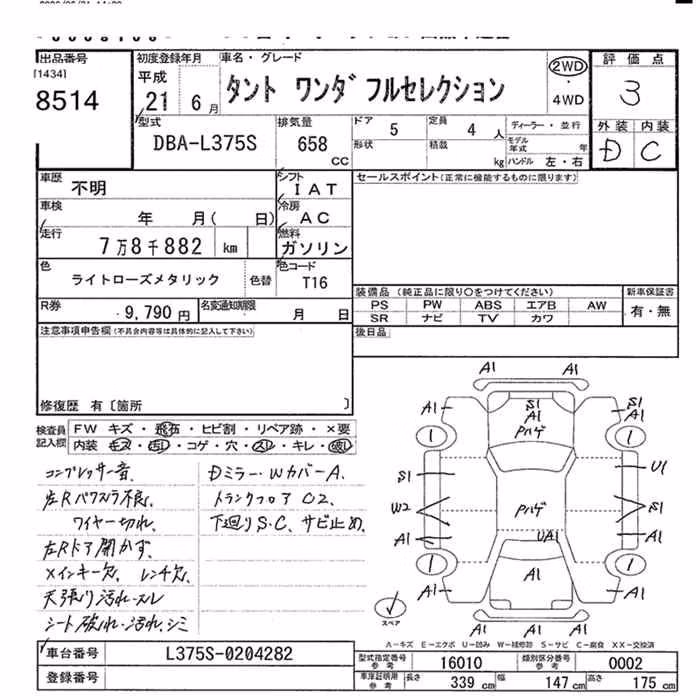 出品番号 初度登録年月 車名・グレード 評価点
[1434] 平成 2WD
8514 21 6月 タント ワンダフルセレクション ・ 3
4WD
型式 排気量 ドア 5 定員 4人 ディーラー・並行 外装 内装
DBA-L375S 658 cc 形状 積載 kg モデル年式 年 D C
ハンドル 左・右
車歴 不明 シフト IAT セールスポイント(正常に機能するものに限ります)
車検 年 月( 日) 冷房 AC
走行 7万8千882 km 燃料 ガソリン
色 ライトローズメタリック 色替 色コード T16
装備品 (純正品に限り〇をつけてください) 新車保証書
R券 9,790円 名変通知期限 月 日 PS PW ABS エアB AW 有・無
SR ナビ TV カワ
注意事項申告欄(不具合内容等は具体的に記入して下さい) 後日品
修復歴 有〔箇所 〕
検査員記入欄 FW キズ・飛石・ヒビ割・リペア跡・×要
内装・キズ・汚れ・コゲ・穴・スレ・キレ・破れ
コンプレッサー音、 Dミラー・WカバーA.
左Rパワスラ不良、 トランクフロアC2.
ワイヤー切れ、 下廻りS.C、サビ止め、
左Rドア開かず、
×インキー欠、レンチ欠、
天張り汚れ・スレ
シート破れ・汚れ、シミ
A1 A1
A1 S1 A1 S1 A1
Pハゲ
1 1
S1 U1
W2 Pハゲ S1
A1 UA1 A1
1 A1 1
A1 A1
A1 A1 A1
スペア
A-キズ E-エクボ U-凹み W-補修跡 S-サビ C-腐食 XX-交換済
車台番号 L375S-0204282
登録番号
型式指定番号 参考 16010 類別区分番号 参考 0002
車庫証明用 参考 長さ 339 cm 幅 147 cm 高さ 175 cm